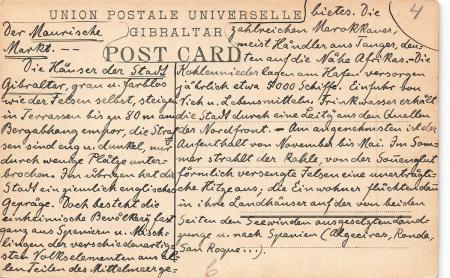 UNION POSTALE UNIVERSELLE
GIBRALTAR
POST CARD
4
Der Maurische
Markt. --
Die Häuser der Stadt
Gibraltar, grau u. farblos
wie der Felsen selbst, steigen
in Terrassen bis zu 80 m am
Bergabhang empor, die Stras
sen sind eng u. dunkel, nur
durch wenige Plätze unter-
brochen. Im übrigen hat die
Stadt ein ziemlich englisches
Gepräge. Doch besteht die
einheimische Bevölkerg fast
ganz aus Spaniern u. Misch-
lingen der verschiedenartig-
sten Volkselementen aus al-
len Teilen des Mittelmeerge-
bietes. Die
zahlreichen Marokkaner,
meist Händler aus Tanger, deu-
ten auf die Nähe Afrikas. - Die
Kohlenniederlagen am Hafen versorgen
jährlich etwa 4000 Schiffe. Einfuhr von
Vieh u. Lebensmitteln, Trinkwasser erhält
die Stadt durch eine Leitg aus den Quellen
der Nordfront. - Am angenehmsten ist der
Aufenthalt von November bis Mai. Im Som-
mer strahlt der Kahle, von der Sonnenglut
förmlich versengte Felsen eine unerträgli-
che Hitze aus; die Einwohner flüchten dann
in ihre Landhäuser auf der von beiden
Seiten den Seewinden ausgesetzten Land-
zunge u. nach Spanien (Algeciras, Ronda,
San Roque...).
6